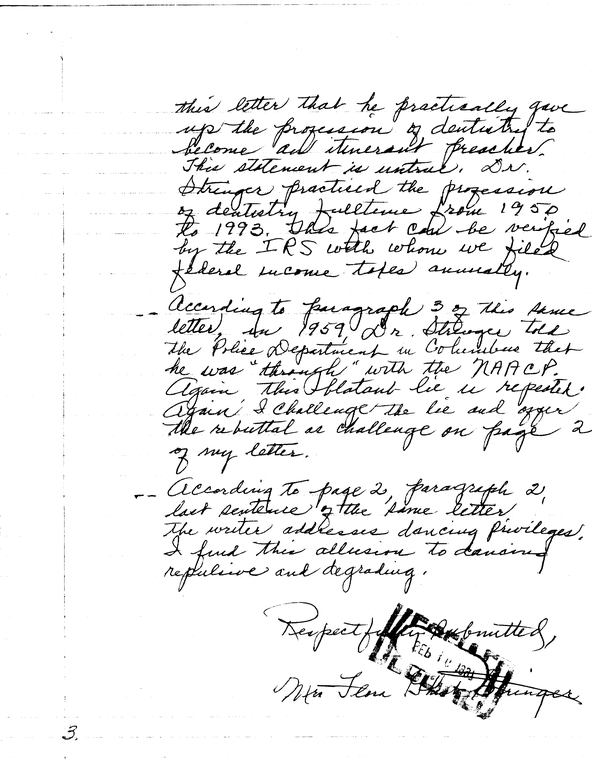 this letter that he practically gave
up the profession of dentistry to
become an itinerant preacher.
This statement is untrue. Dr.
Stringer practised the profession
of dentistry fulltime from 1950
to 1993. This fact can be verified
by the IRS with whom we filed
federal income taxes annually.
-- According to paragraph 3 of this same
letter, in 1959, Dr. Stringer told
the Police Department in Columbus that
he was "through" with the NAACP.
Again this blatant lie is repeated.
Again I challenge the lie and offer
the rebuttal as challenge on page 2
of my letter.
-- According to page 2, paragraph 2,
last sentence of the same letter
the writer addresses dancing privileges.
I find this allusion to dancing
repulsive and degrading.
Respectfully Submitted,
FEB 10
Mrs Flora Stringer
3.